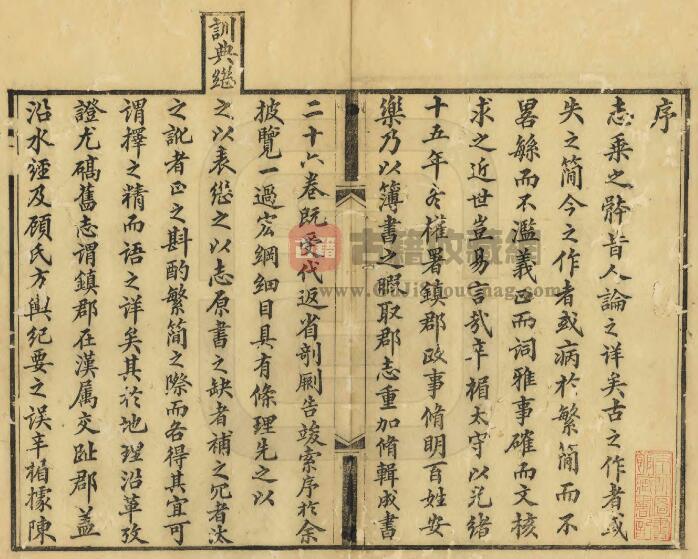 序
志乘之骵昔人論之詳矣古之作者或
失之簡今之作者或病於繁簡而不
畧緐而不濫義正而詞雅事確而文核
求之近世豈易言哉辛楣太守以光緒
十五年冬權署鎮郡政事脩明百姓安
樂乃以簿書之暇取郡志重加脩輯成書
二十六卷既受代返省剞劂告竣索序於余
披覽一過宏綱細目具有條理先之以
訓典繼
之以表繼之以志原書之缺者補之冗者汰
之訛者正之斟酌繁簡之際而各得其宜可
謂擇之精而語之詳矣其於地理沿革攷
證尤碻舊志謂鎮郡在漢屬交趾郡蓋
沿水經及顧氏方輿紀要之誤辛楣據陳
古籍
古籍收藏網